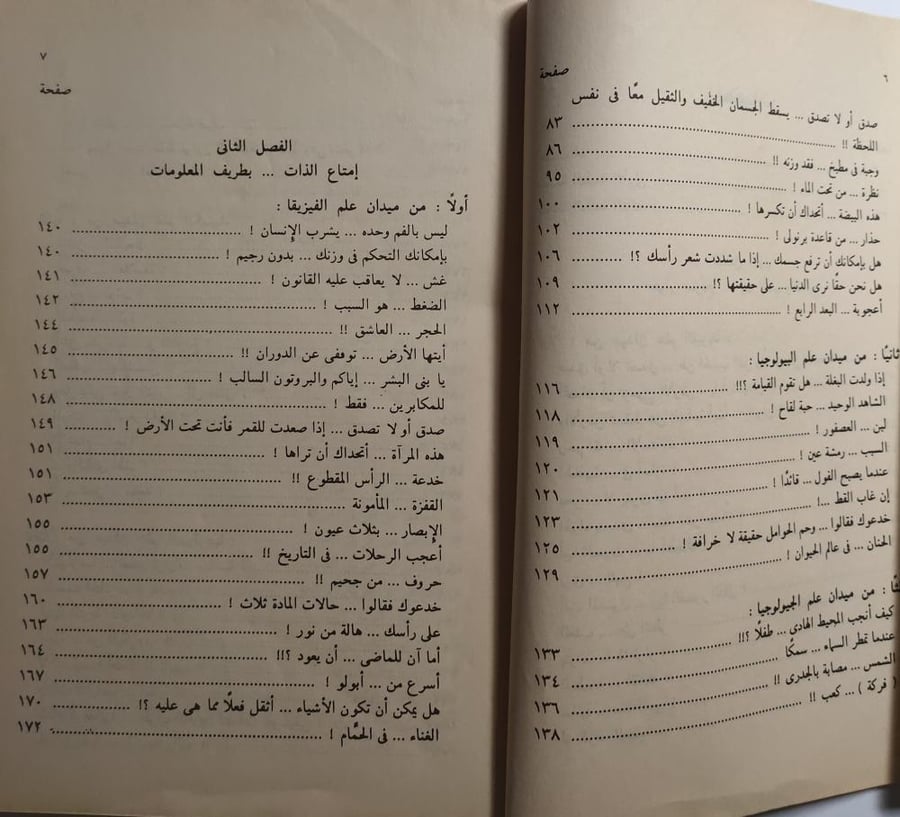 ٦
صفحة
صدق أو لا تصدق ... يسقط الجسمان الخفيف والثقيل معًا فى نفس
اللحظة !! ................ ٨٣
وجبة فى مطبخ ... فقد وزنه !! ................ ٨٦
نظرة ... من تحت الماء ! ................ ٩٥
هذه البيضة ... أتحداك أن تكسرها ! ................ ١٠٠
حذار ... من قاعدة برنولى ! ................ ١٠٢
هل بإمكانك أن ترفع جسمك ... إذا ما شددت شعر رأسك ؟! .......... ١٠٦
هل نحن حقًا نرى الدنيا ... على حقيقتها ؟! ................ ١٠٩
أعجوبة ... البعد الرابع ! ................ ١١٢
ثانيًا : من ميدان علم البيولوجيا :
إذا ولدت البغلة ... هل تقوم القيامة ؟!! ................ ١١٦
الشاهد الوحيد ... حبة لقاح ! ................ ١١٨
لبن ... العصفور ! ................ ١١٩
السبب ... رمشة عين ! ................ ١٢٠
عندما يصبح الفول ... قائدًا ! ................ ١٢١
إن غاب القط ...! ................ ١٢٣
خدعوك فقالوا ... وحم الحوامل حقيقة لا خرافة ! ................ ١٢٥
الحنان ... فى عالم الحيوان ! ................ ١٢٩
ثًا : من ميدان علم الجيولوجيا :
كيف أنجب المحيط الهادى ... طفلًا ؟!! ................ ١٣٣
عندما تمطر السماء ... سمكًا ................ ١٣٤
الشمس ... مصابة بالجدرى !! ................ ١٣٦
( فركة ) ... كعب !! ................ ١٣٨
٧
صفحة
الفصل الثانى
إمتاع الذات ... بطريف المعلومات
أولًا : من ميدان علم الفيزيقا :
ليس بالفم وحده ... يشرب الإنسان ! ................ ١٤٠
بإمكانك التحكم فى وزنك ... بدون رجيم ! ................ ١٤٠
غش ... لا يعاقب عليه القانون ! ................ ١٤١
الضغط ... هو السبب ! ................ ١٤٢
الحجر ... العاشق !! ................ ١٤٤
أيتها الأرض ... توقفى عن الدوران !! ................ ١٤٥
يا بنى البشر ... إياكم والبروتون السالب ! ................ ١٤٦
للمكابرين ... فقط ! ................ ١٤٨
صدق أو لا تصدق ... إذا صعدت للقمر فأنت تحت الأرض ! .......... ١٤٩
هذه المرآة ... أتحداك أن تراها ! ................ ١٥١
خدعة ... الرأس المقطوع !! ................ ١٥١
القفزة ... المأمونة ................ ١٥٣
الإبصار ... بثلاث عيون ! ................ ١٥٥
أعجب الرحلات ... فى التاريخ !! ................ ١٥٥
حروف ... من جحيم !! ................ ١٥٧
خدعوك فقالوا ... حالات المادة ثلاث ! ................ ١٦٠
على رأسك ... هالة من نور ! ................ ١٦٣
أما آن للماضى ... أن يعود ؟!! ................ ١٦٤
أسرع من ... أبولو ! ................ ١٦٧
هل يمكن أن تكون الأشياء ... أثقل فعلًا مما هى عليه ؟! .......... ١٧٠
الغناء ... فى الحمَّام ! ................ ١٧٢